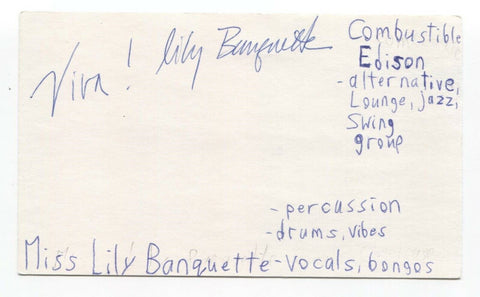 Viva! Lily Banquette
Combustible
Edison
- alternative,
Lounge, jazz,
Swing
group
- percussion
- drums, vibes
Miss Lily Banquette - vocals, bongos